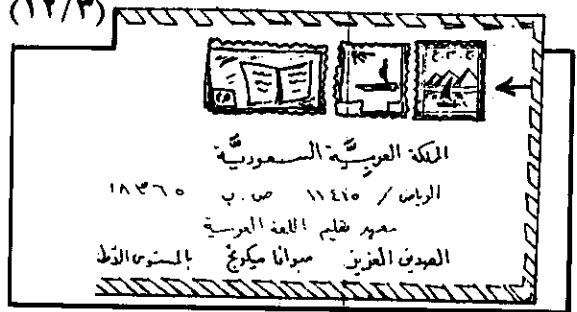 (١٢/٣)
المملكة العربيَّة السعوديَّة
الرياض / ١١٤٤٥ ص.ب ١٨٣٦٥
معهد تعليم اللغة العربية
الصديق العزيز ميكونج بالمستوى الأول